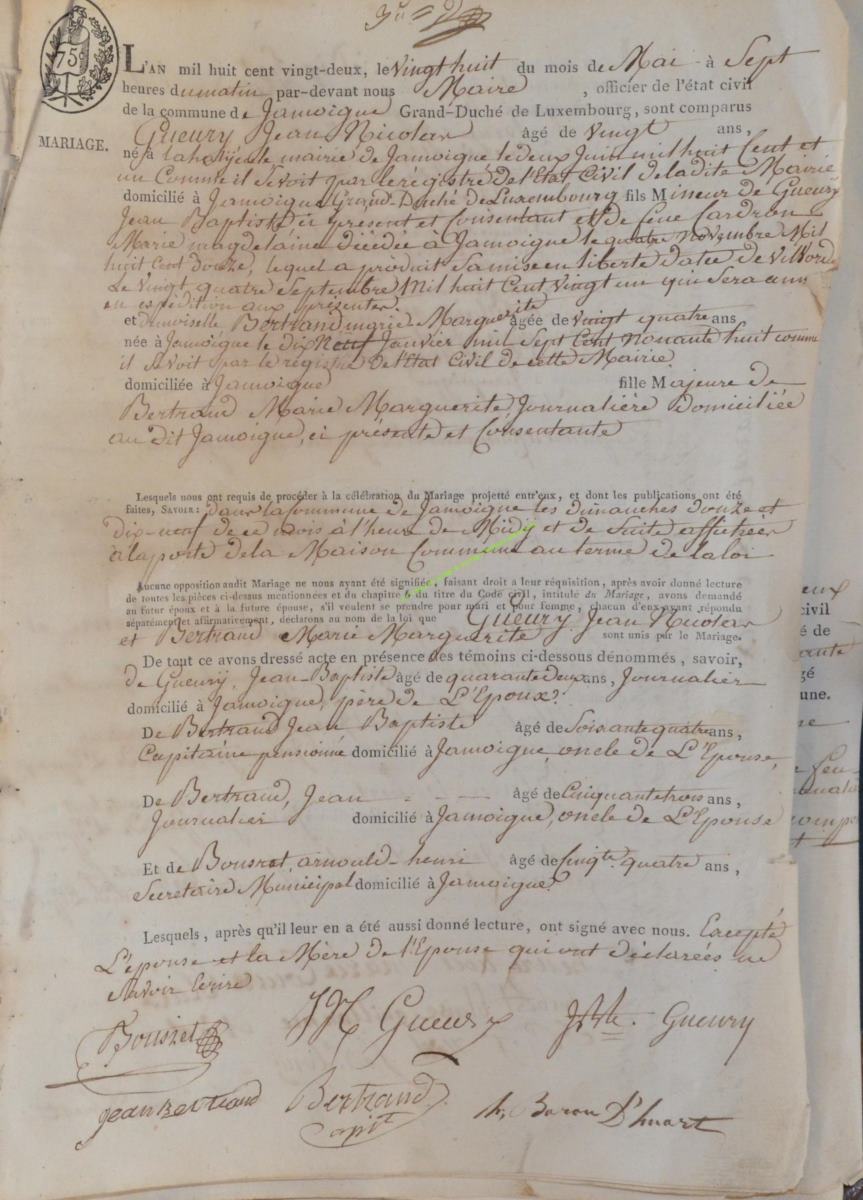 75
L'AN mil huit cent vingt-deux, le Vingt huit du mois de Mai à Sept
heures du matin par-devant nous Maire, officier de l'état civil
de la commune de Jamoigne Grand-Duché de Luxembourg, sont comparus
MARIAGE.
Gueury Jean Nicolas âgé de Vingt ans,
né à mairie de Jamoigne le deux Juin mil huit Cent et
un Comme il se voit par le régistre de l'Etat Civil de la dite Mairie
domicilié à Jamoigne Grand-Duché de Luxembourg fils Mineur de Gueury
Jean Baptiste ici présent et Consentant et de Cardron
Marie magdelaine décédée à Jamoigne le quatre Novembre Mil
huit Cent Douze, lequel a produit sa mise en liberté datée de Vilvorde
Le vingt quatre Septembre Mil huit Cent Vingt un qui Sera
en expédition aux présentes
et Dmoiselle Bertrand marie Marguerite âgée de Vingt quatre ans
née à Jamoigne le dix Neuf Janvier mil Sept Cent Nonante huit comme
il se voit par le régistre de l'Etat Civil de cette Mairie
domiciliée à Jamoigne fille Majeure de
Bertrand Marie Marguerite, Journalière Domiciliée
au dit Jamoigne, ci présente et Consentante
Lesquels nous ont requis de procéder à la célébration du Mariage projetté entr'eux, et dont les publications ont été
faites, SAVOIR: dans la Commune de Jamoigne les dimanches douze et
dix-neuf de ce mois à l'heure de Midy et de Suite affichées
à la porte de la Maison Commune au terme de la loi
Aucune opposition audit Mariage ne nous ayant été signifiée, faisant droit a leur réquisition, après avoir donné lecture
de toutes les pièces ci-dessus mentionnées et du chapitre 6 du titre du Code civil, intitulé du Mariage, avons demandé
au futur époux et à la future épouse, s'il veulent se prendre pour mari et pour femme, chacun d'eux ayant répondu
séparément et affirmativement, declarons au nom de la loi que Gueury Jean Nicolas
et Bertrand Marie Marguerite sont unis par le Mariage.
De tout ce avons dressé acte en présence des témoins ci-dessous dénommés, savoir,
de Gueury, Jean-Baptiste âgé de quarante deux ans, Journalier
domicilié à Jamoigne, père de L'Epoux.
De Bertrand Jean Baptiste âgé de Soissante quatre ans,
Capitaine pensionné domicilié à Jamoigne, oncle de L'Epouse,
De Bertrand, Jean - - - âgé de Cinquante trois ans,
Journalier domicilié à Jamoigne, oncle de L'Epouse
Et de Bouszet, arnould-henri âgé de Vingt quatre ans,
Secretaire Municipal domicilié à Jamoigne.
Lesquels, après qu'il leur en a été aussi donné lecture, ont signé avec nous. Excepté
L'épouse et la Mère de l'Epouse qui ont déclarées ne
Savoir Ecrire
Bouszet JN Gueury Gueury
jean Bertrand Bertrand capit h. Baron D'huart